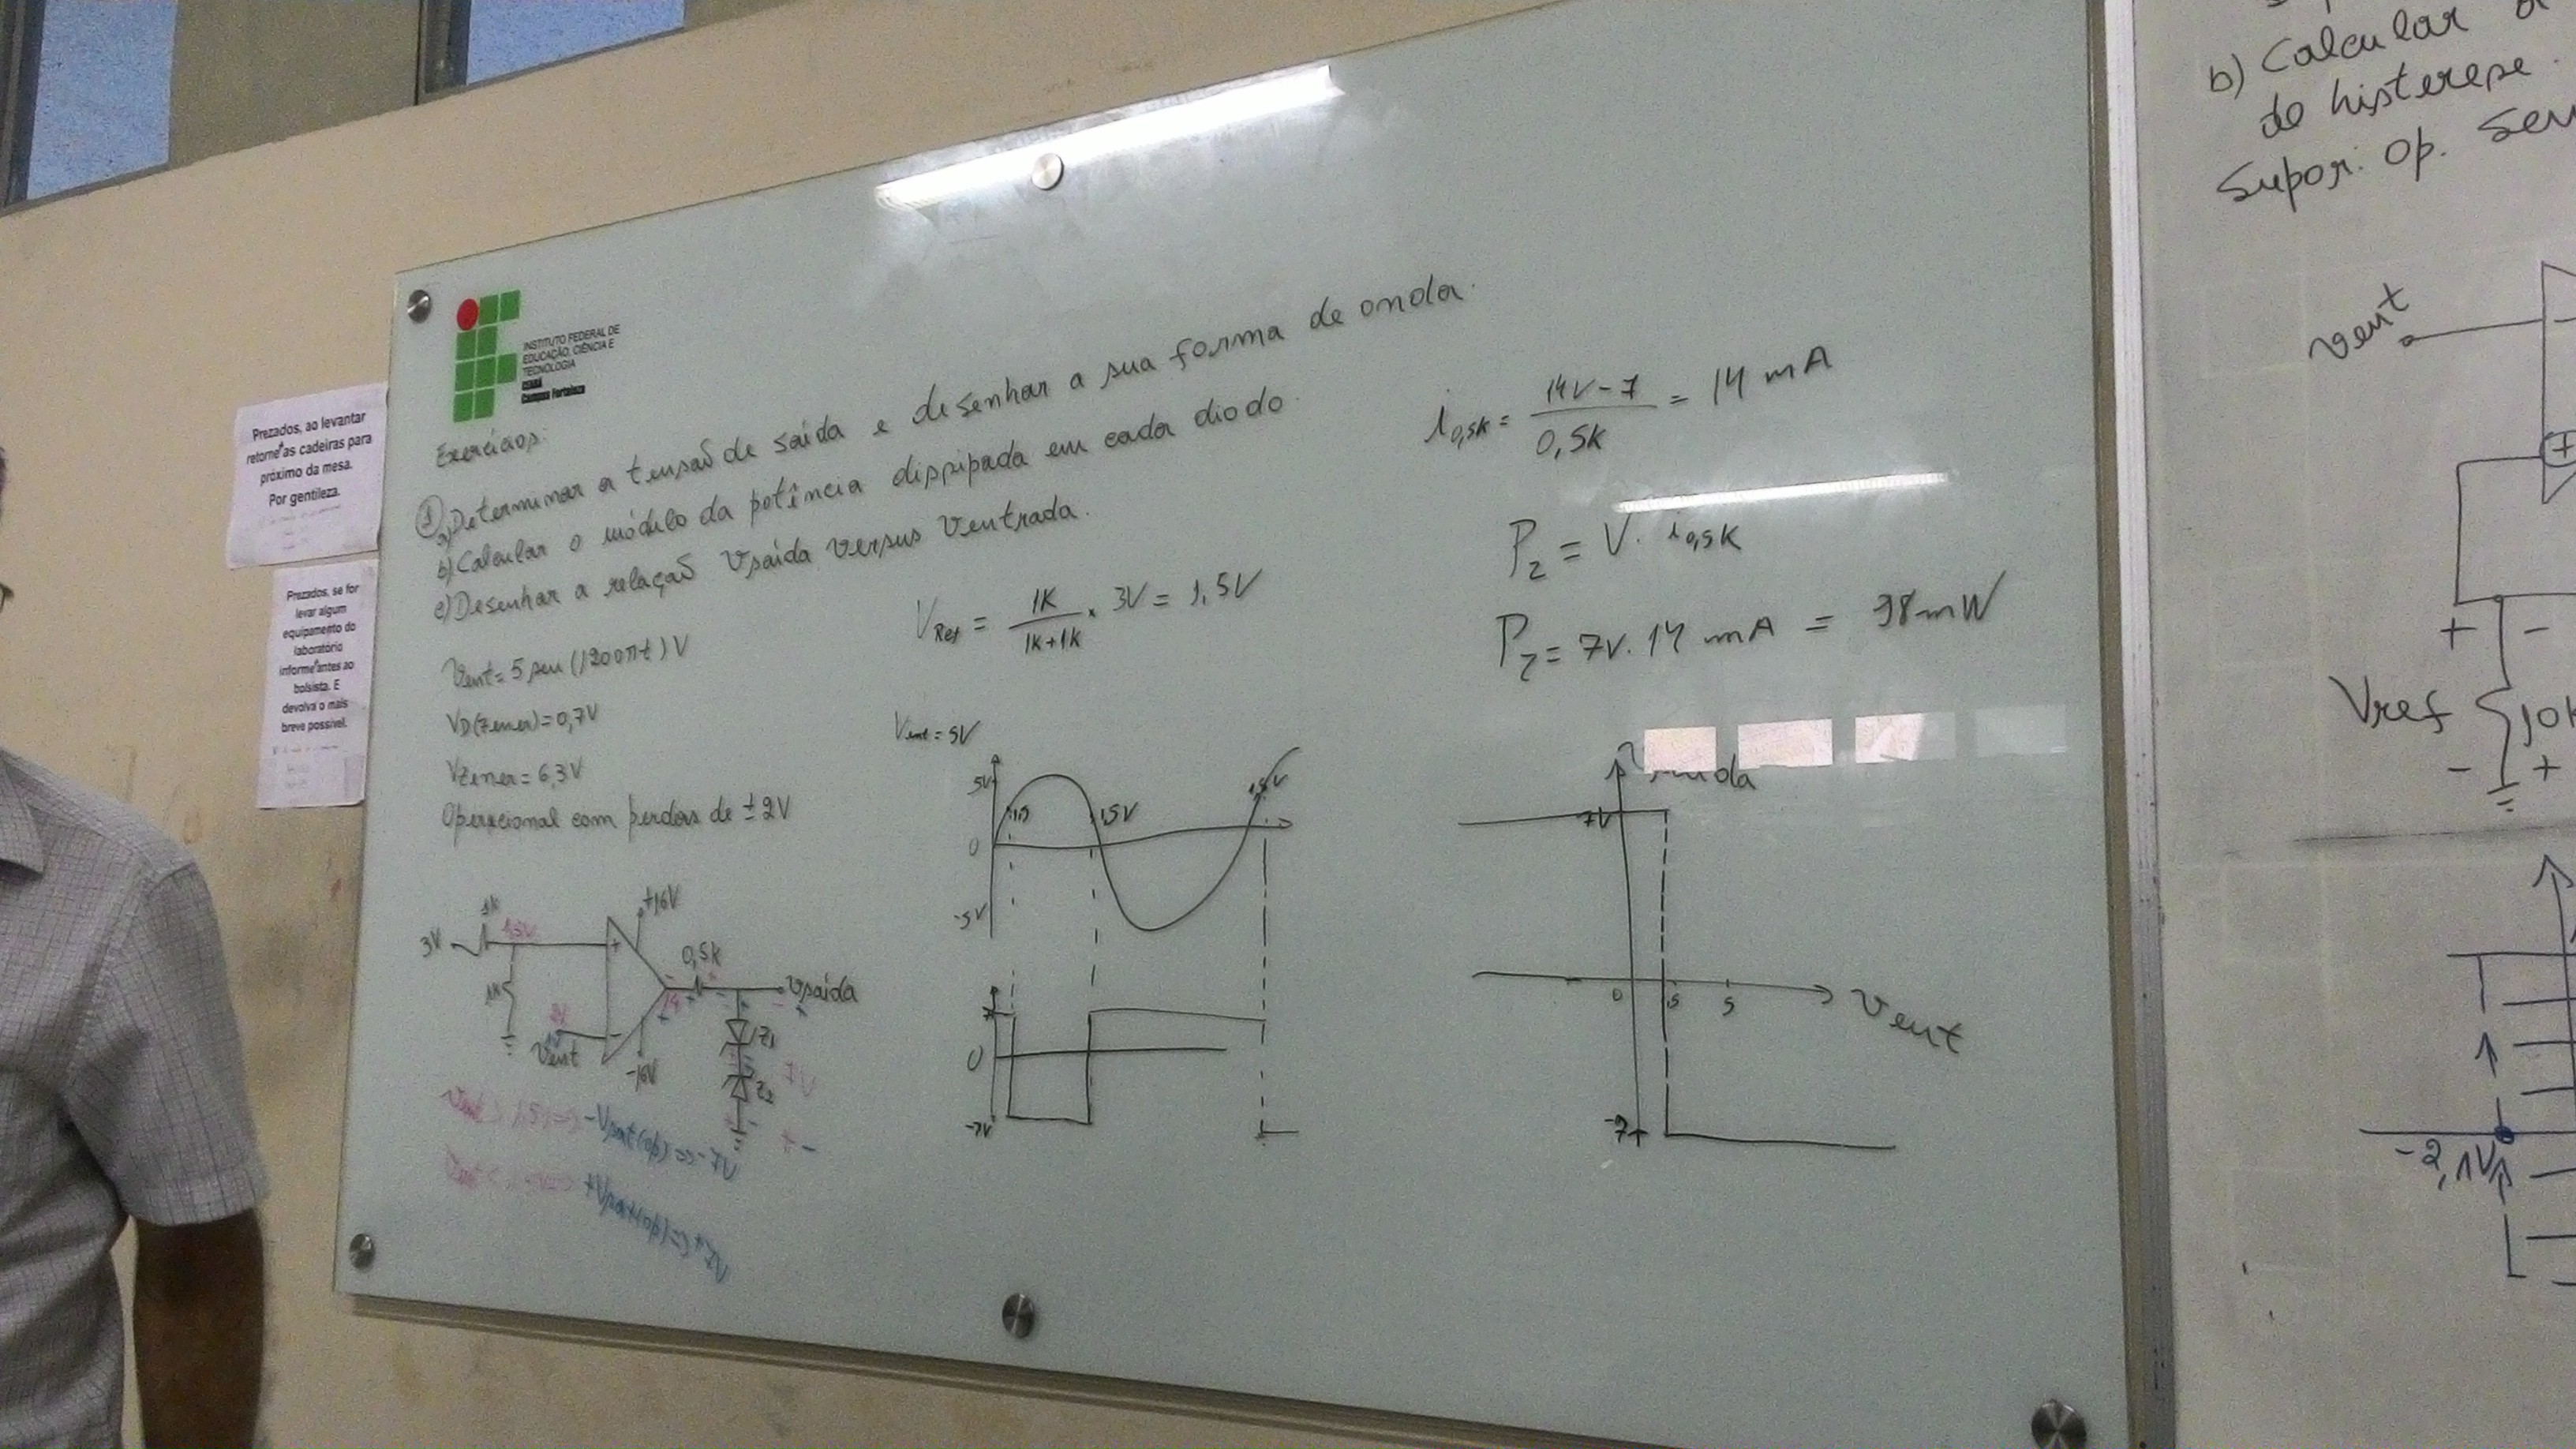 Prezados, ao levantar
retorne as cadeiras para
próximo da mesa.
Por gentileza.
Prezados, se for
levar algum
equipamento do
laboratório
informe antes ao
bolsista. E
devolva o mais
breve possível.
INSTITUTO FEDERAL DE
EDUCAÇÃO, CIÊNCIA E
TECNOLOGIA
CEARÁ
Campus Fortaleza
Exercícios:
1 a) Determinar a tensão de saída e desenhar a sua forma de onda.
b) Calcular o módulo da potência dissipada em cada diodo.
c) Desenhar a relação Vsaída versus Ventrada.
Vent = 5 sen (1200πt) V
VD(zener) = 0,7V
Vzener = 6,3V
Operacional com perdas de ±2V
3V
1K
1,5V
+
+16V
0,5K
Vsaída
1K
14
Vent
-
-16V
Z1
Z2
7V
-Vsat(op) => -7V
VRef = 1K / 1K+1K × 3V = 1,5V
Vent = 5V
5V
1,5
1,5V
1,5V
0
-5V
7
0
-7V
i0,5K = 14V - 7 / 0,5K = 14 mA
PZ = V. i0,5K
PZ = 7V. 14 mA = 98mW
7V
0
1,5
5
Vent
-7
b) Calcular
de histerese.
Supor: Op. sem
Vent
+
+ -
Vref
10K
- +
-2,1V